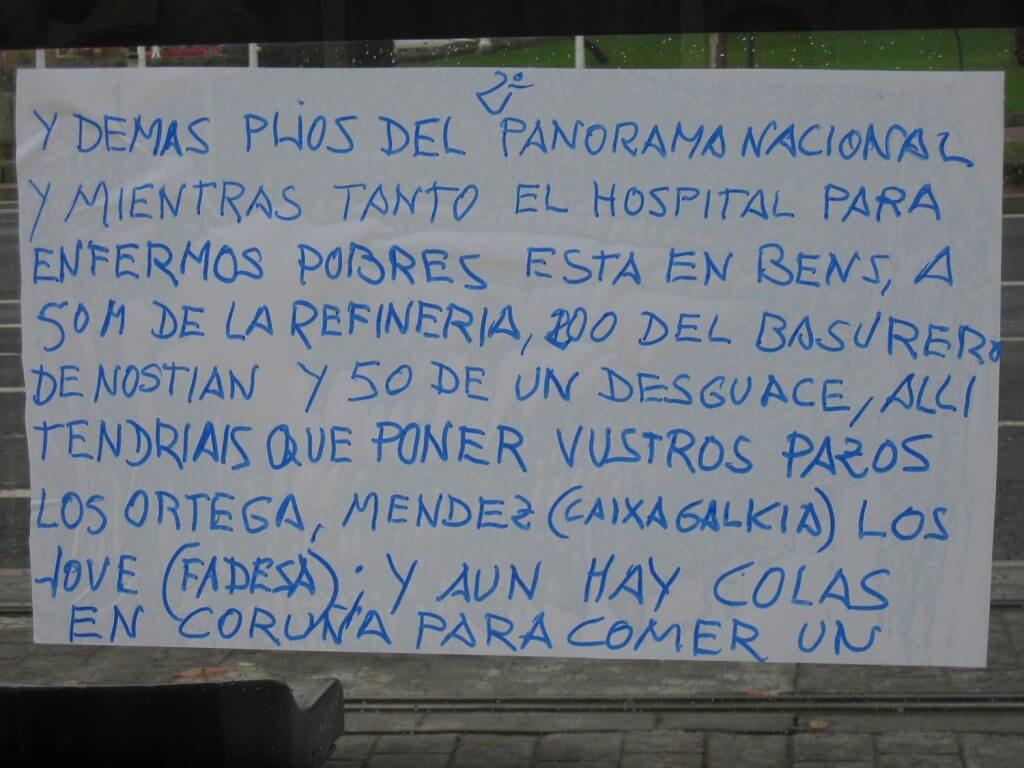 2º
Y DEMAS PIJOS DEL PANORAMA NACIONAL
Y MIENTRAS TANTO EL HOSPITAL PARA
ENFERMOS POBRES ESTA EN BENS, A
50M DE LA REFINERIA, 200 DEL BASURERO
DE NOSTIAN Y 50 DE UN DESGUACE, ALLI
TENDRIAIS QUE PONER VUSTROS PAZOS
LOS ORTEGA, MENDEZ (CAIXAGALKIA) LOS
JOVE (FADESA); Y AUN HAY COLAS
EN CORUÑA PARA COMER UN